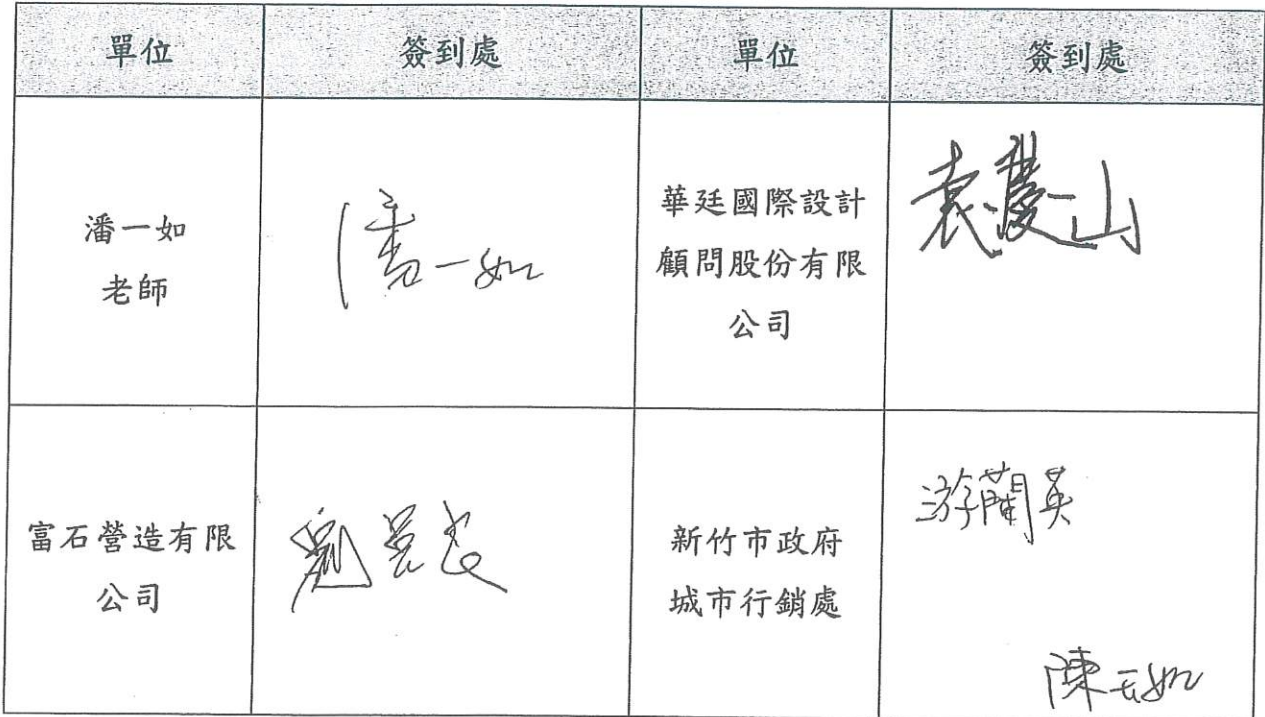 單位 簽到處 單位 簽到處
潘一如
老師
潘一如
華廷國際設計
顧問股份有限
公司
袁慶山
富石營造有限
公司
新竹市政府
城市行銷處
游蘭英
陳玉如